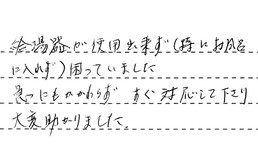 給湯器が使用出来ず(特にお風呂
に入れず)困っていました
急にもかかわらず すぐ対応して下さり
大変助かりました。